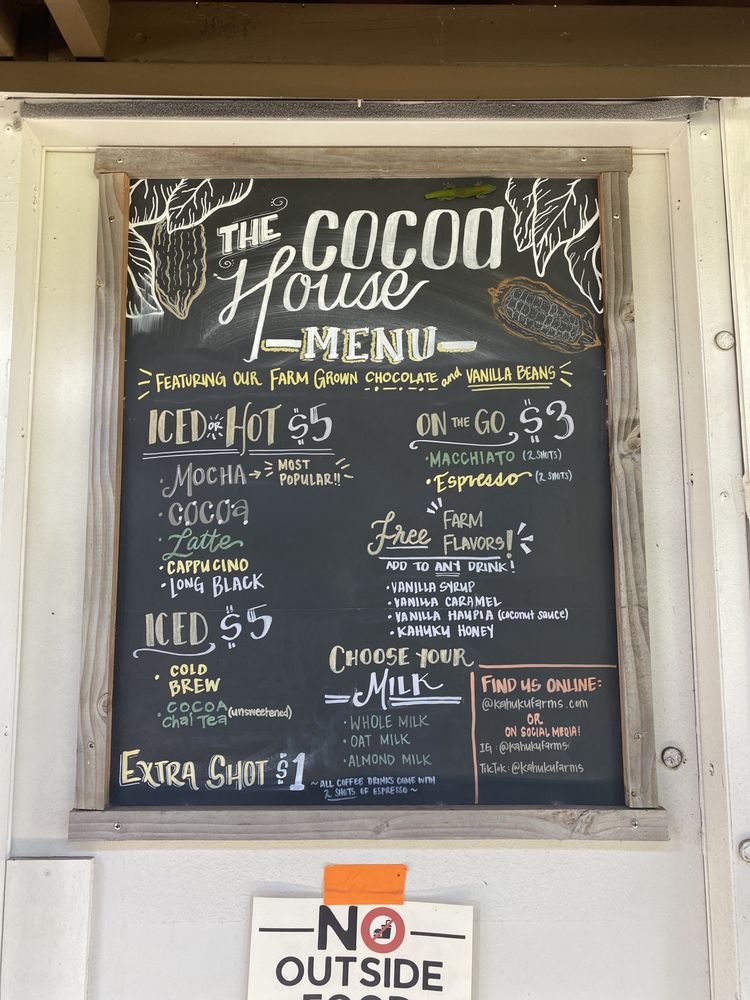 THE COCOA
House
MENU
FEATURING OUR FARM GROWN CHOCOLATE and VANILLA BEANS
ICED OR HOT $5
• MOCHA → MOST POPULAR!!
• COCOA
• Latte
• CAPPUCINO
• LONG BLACK
ICED $5
• COLD
BREW
• COCOA
Chai Tea (unsweetened)
EXTRA SHOT $1
~ ALL COFFEE DRINKS COME WITH
2 SHOTS OF ESPRESSO ~
ON THE GO $3
• MACCHIATO (2 SHOTS)
• Espresso (2 SHOTS)
Free FARM
FLAVORS!
ADD TO ANY DRINK!
• VANILLA SYRUP
• VANILLA CARAMEL
• VANILLA HAUPIA (coconut sauce)
• KAHUKU HONEY
CHOOSE YOUR
MILK
• WHOLE MILK
• OAT MILK
• ALMOND MILK
FIND US ONLINE:
@kahukufarms.com
OR
ON SOCIAL MEDIA!
IG: @kahukufarms
TikTok: @kahukufarms
NO
OUTSIDE
FOOD